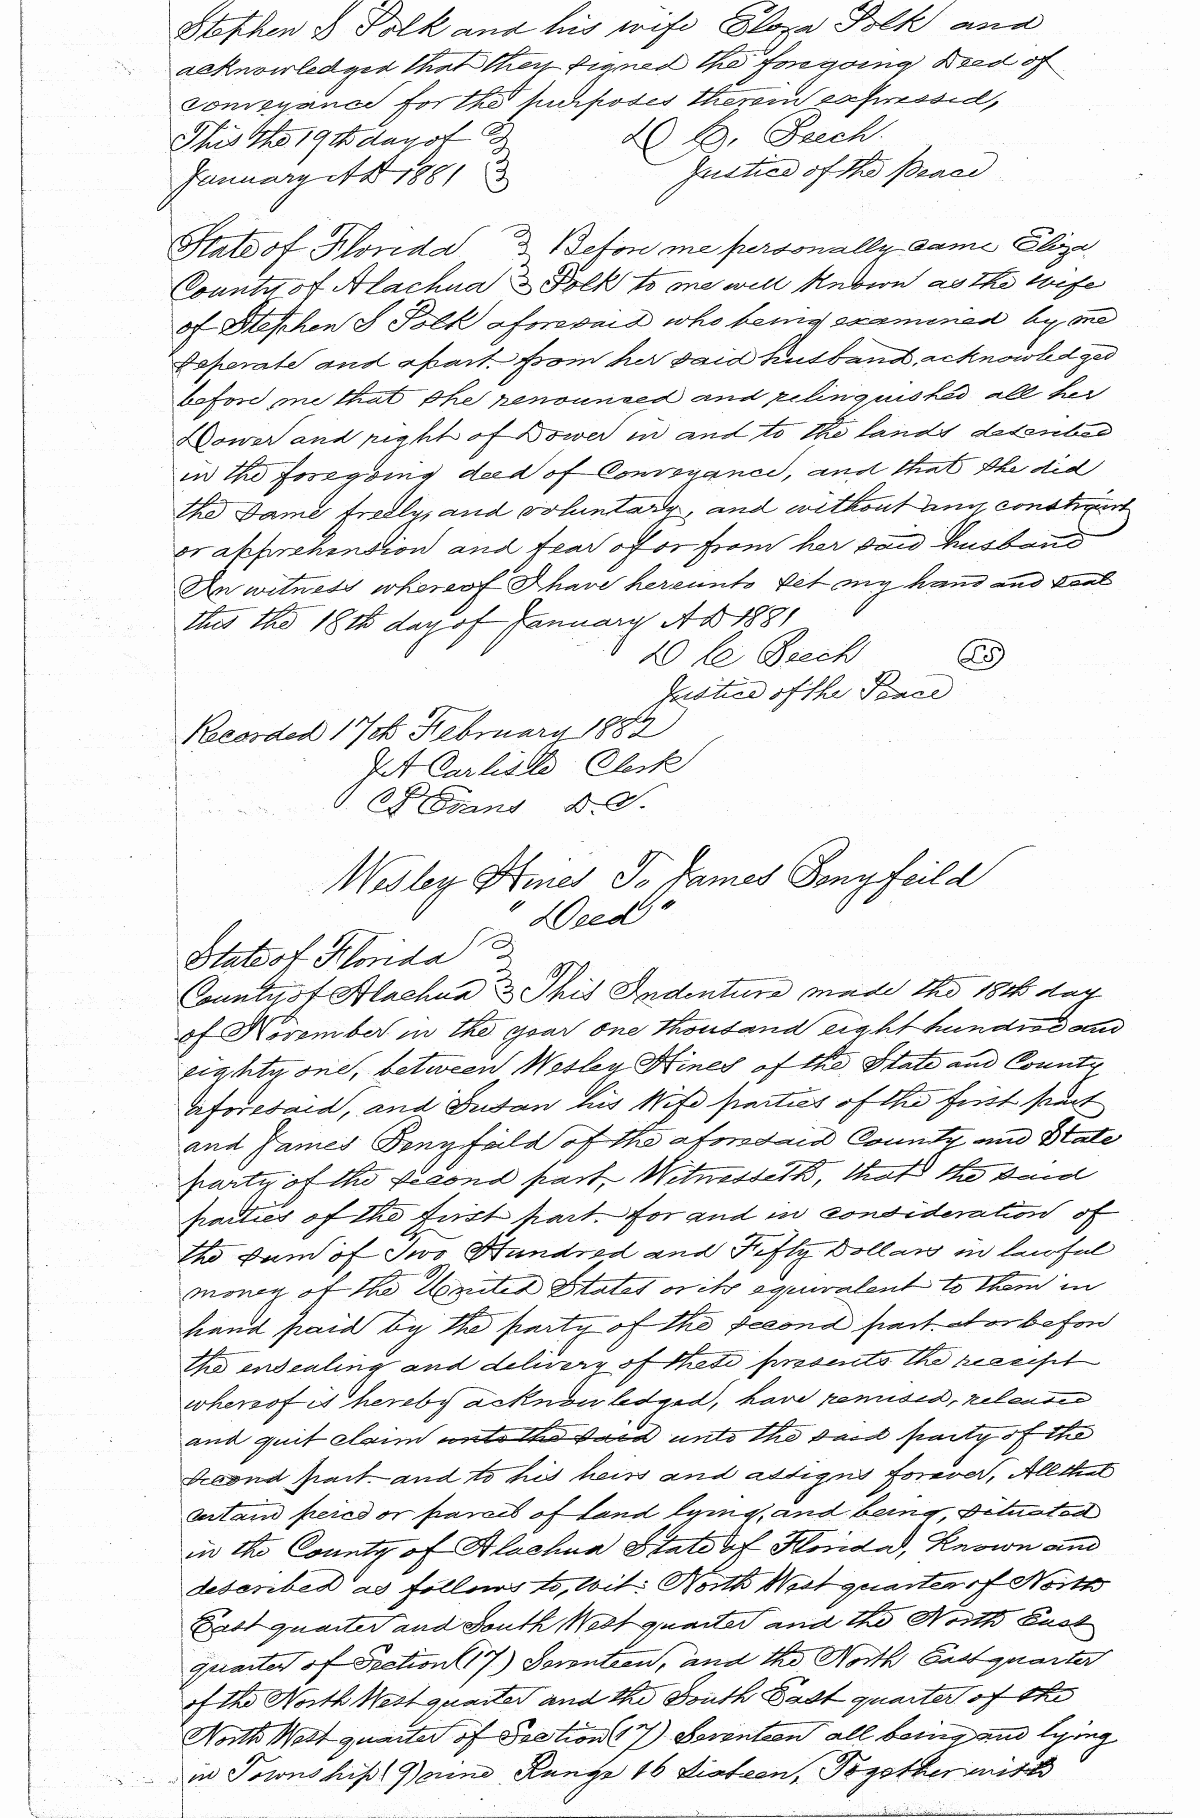 Stephen S Polk and his wife Eliza Polk and
acknowledged that they signed the foregoing Deed of
conveyance for the purposes therein expressed,
This the 19th day of D C. Beech
January AD 1881 Justice of the Peace
State of Florida Before me personally came Eliza
County of Alachua Polk to me well known as the wife
of Stephen S Polk aforesaid who being examined by me
seperate and apart from her said husband, acknowledged
before me that she renounced and relinquished all her
Dower and right of Dower in and to the lands described
in the foregoing deed of Conveyance, and that she did
the same freely, and voluntary, and without any constraint
or apprehension and fear of or from her said husband
In witness whereof I have hereunto set my hand and seal
this the 18th day of January AD 1881
D C Beech LS
Justice of the Peace
Recorded 17th February 1882
J A Carlisle Clerk
Evans D.C.
Wesley Hines To James Penyfeild
"Deed"
State of Florida
County of Alachua This Indenture made the 18th day
of November in the year one thousand eight hundred and
eighty one, between Wesley Hines of the State and County
aforesaid, and Susan his Wife parties of the first part
and James Penyfeild of the aforesaid County and State
party of the second part, Witnesseth, that the said
parties of the first part. for and in consideration of
the sum of Two Hundred and Fifty Dollars in lawful
money of the United States or its equivalent to them in
hand paid by the party of the second part. at or before
the ensealing and delivery of these presents the receipt
whereof is hereby acknowledged, have remised, release
and quit claim unto the said unto the said party of the
second part and to his heirs and assigns forever, All that
certain peice or parcel of land lying, and being, situated
in the County of Alachua State of Florida, Known and
described as follows to, wit: North West quarter of North
East quarter and South West quarter and the North East
quarter of Section (17) Seventeen, and the North East quarter
of the North West quarter and the South East quarter of the
North West quarter of Section (17) Seventeen all being and lying
in Township (9) nine Range 16 Sixteen, Together with